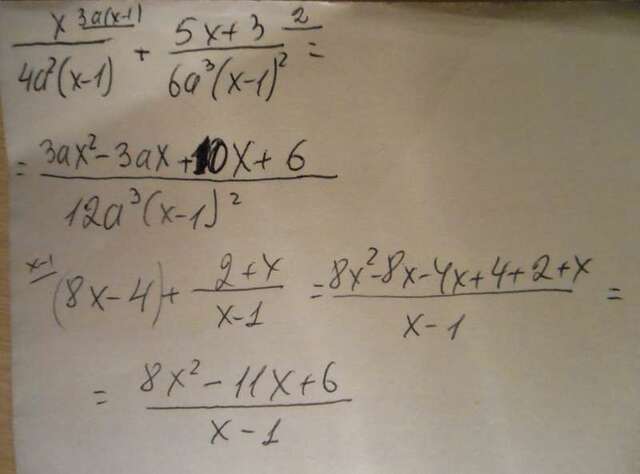 x^{3a(x-1)}/4a²(x-1) + 5x+3^{2}/6a³(x-1)² =
= 3ax²-3ax+10x+6/12a³(x-1)²
^{x-1}(8x-4)+ 2+x/x-1 = 8x²-8x-4x+4+2+x/x-1 =
= 8x²-11x+6/x-1